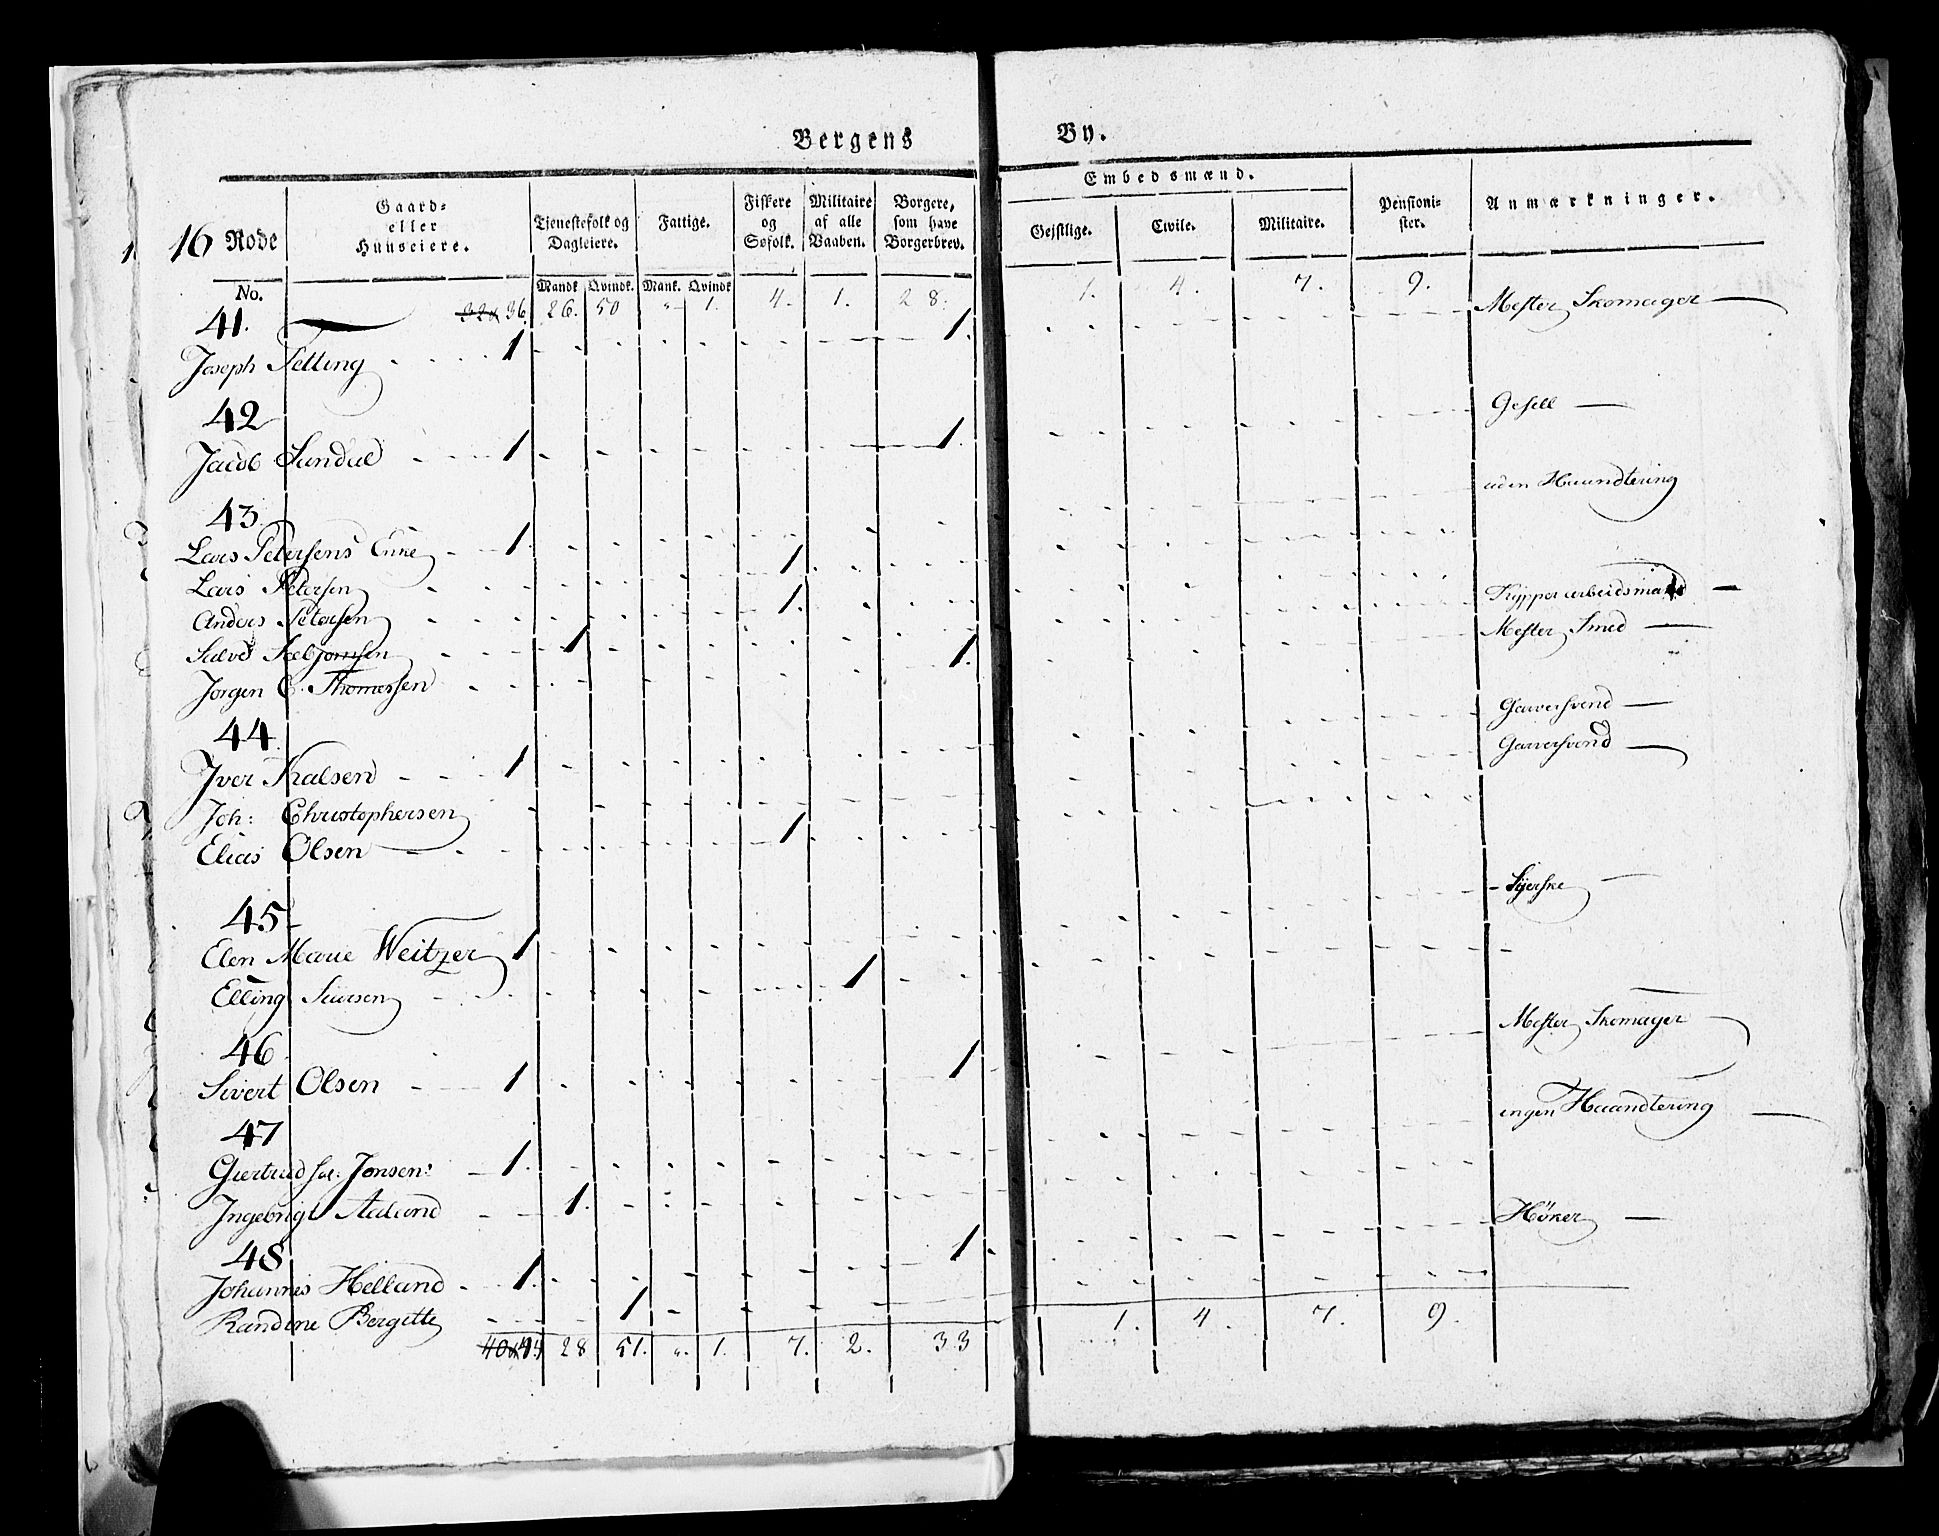 Bergens By.
16 Rode
No.
Gaard- eller Huuseiere.
Tjenestefolk og Dagleiere. Mandk. Qvindk.
Fattige. Mank. Qvindk.
Fiskere og Søfolk.
Militaire af alle Vaaben.
Borgere, som have Borgerbrev.
Embedsmænd.
Gejstlige. Civile. Militaire.
Pensionister.
Anmærkninger.
36. 26. 50 „ 1. 4. 1. 28. 1. 4. 7. 9.
41.
Joseph Tetting 1 1. Mester Skomager
42
Jacob Sundal 1 1. Gesell
43
Lars Petersens Enke 1. uden Haandtering
Lars Petersen 1.
Anders Petersen 1. Kypper arbeidsmand
Sælvd Sæbjørnsen 1
Jørgen C. Thomessen 1. Mester Smed
44
Iver Kalsen 1 Garversvend
Joh: Christophersen Garversvend
Elias Olsen 1
45
Elen Marie Weitzer 1 Syerske
Elling Siursen 1
46
Sivert Olsen 1 1 Mester Skomager
47
Giertrud sal: Jonsen 1. ingen Haandtering
Ingebrigt Aalund 1.
48
Johannes Helland 1. 1 Höker
Randine Bergitte 1
45 28 51. „ 1. 7. 2. 33 1. 4. 7. 9.